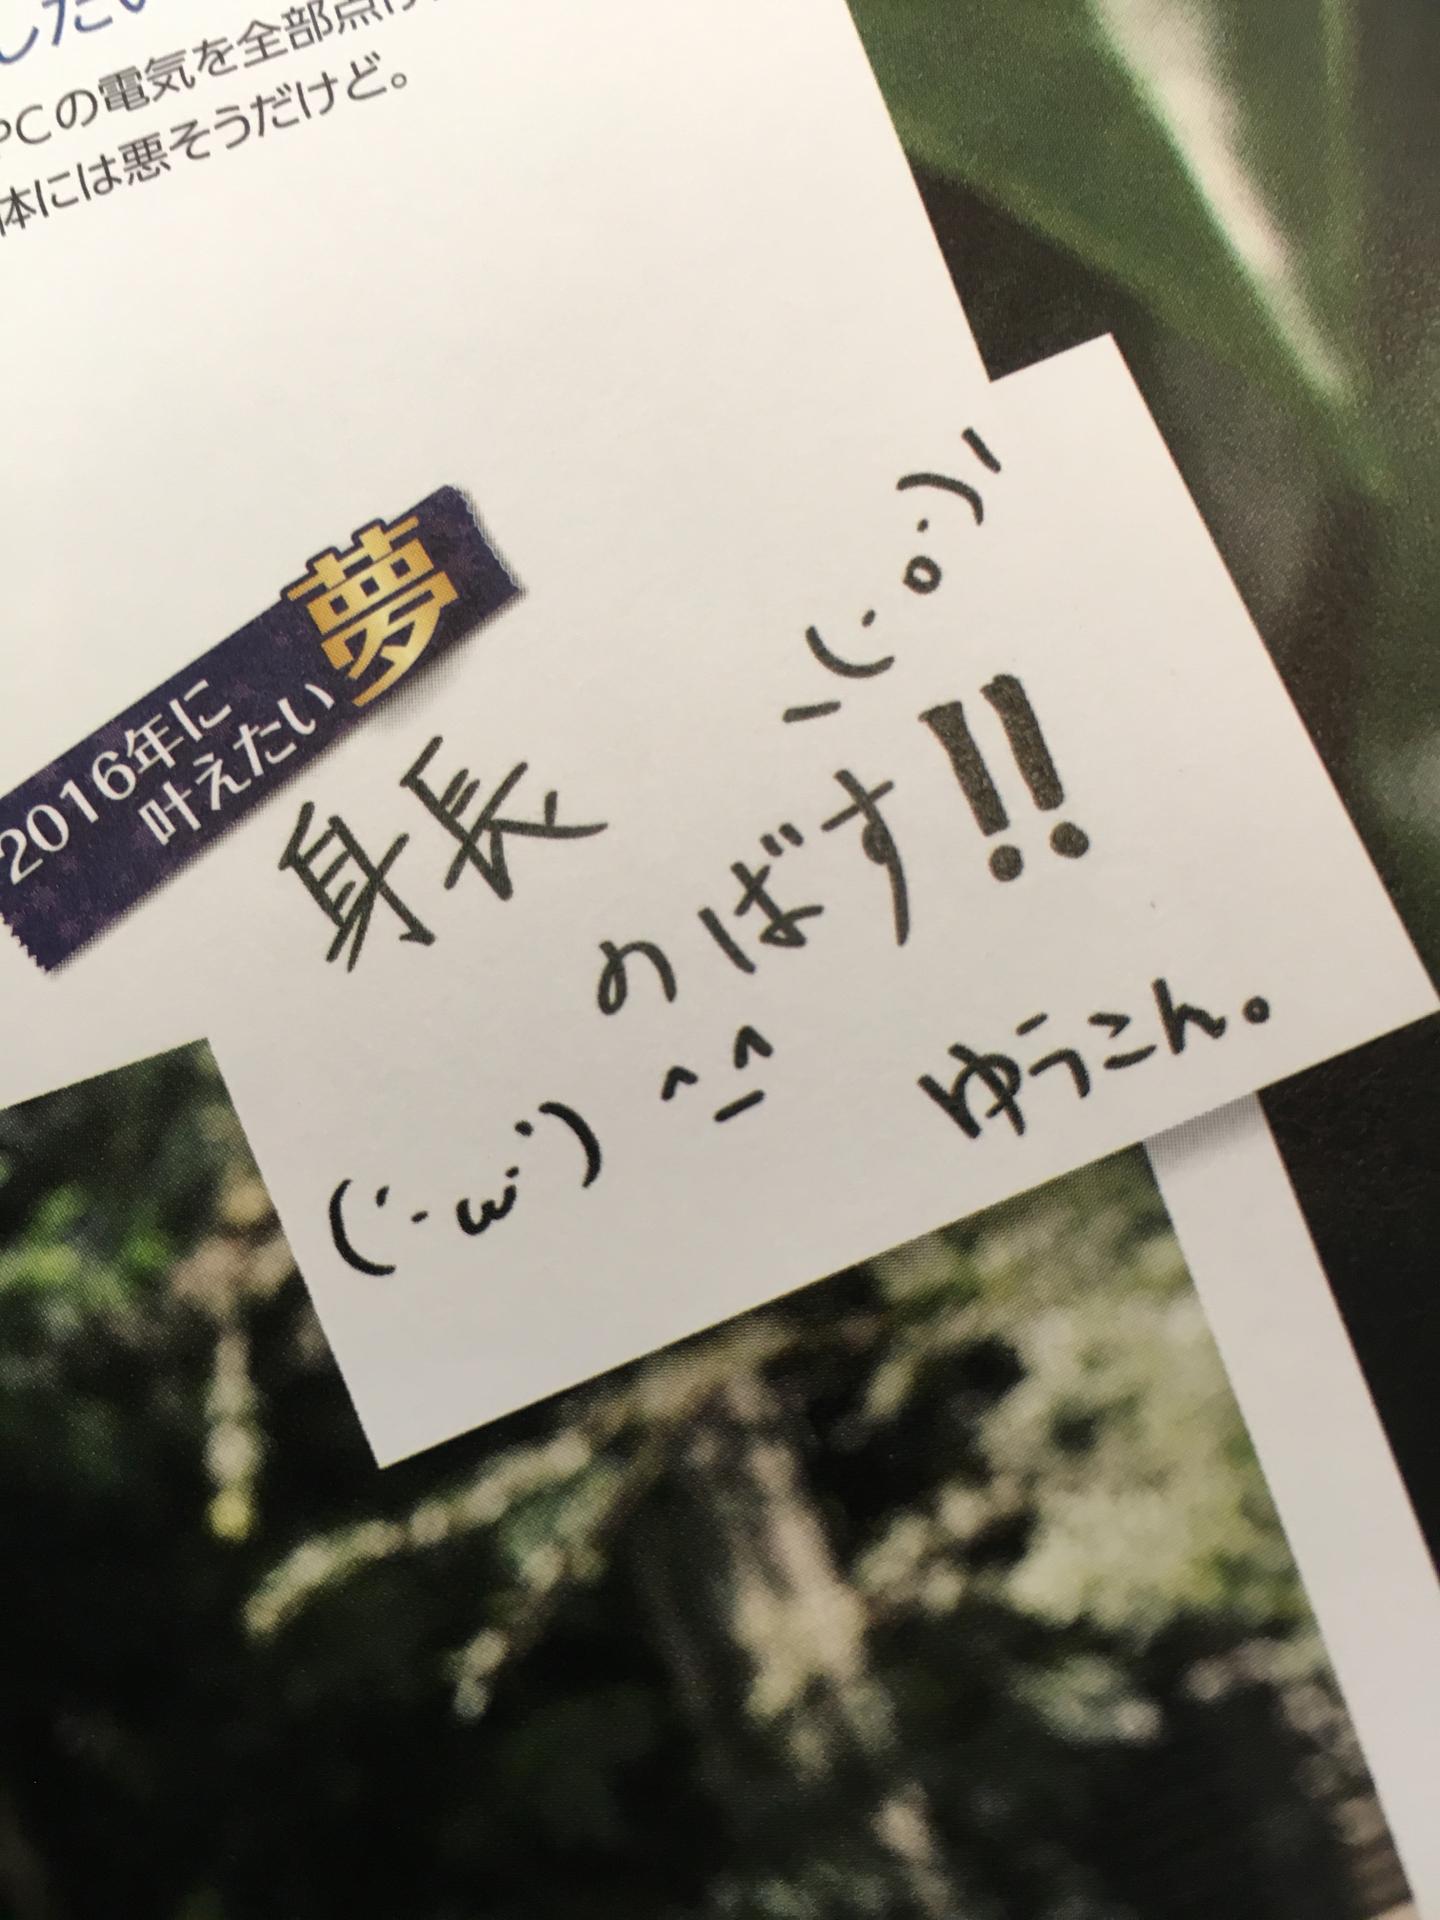 したい
PCの電気を全部点け
体には悪そうだけど。
2016年に
叶えたい夢
身長
のばす!!
ゆうこん。